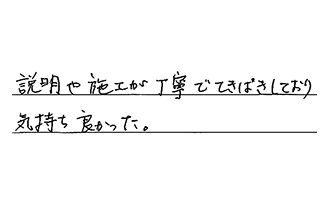 説明や施工が丁寧でてきぱきしており
気持ち良かった。